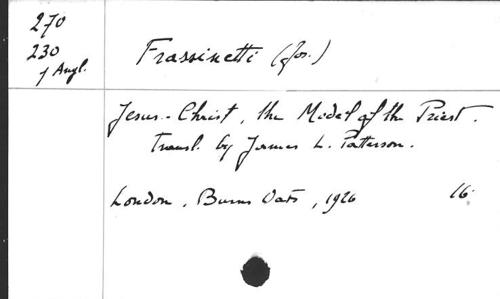 270
230
1 Angl.
Frassinetti (Jos.)
Jesus-Christ, the Model of the Priest.
Transl. by James L. Patterson.
London, Burns Oats, 1926 16